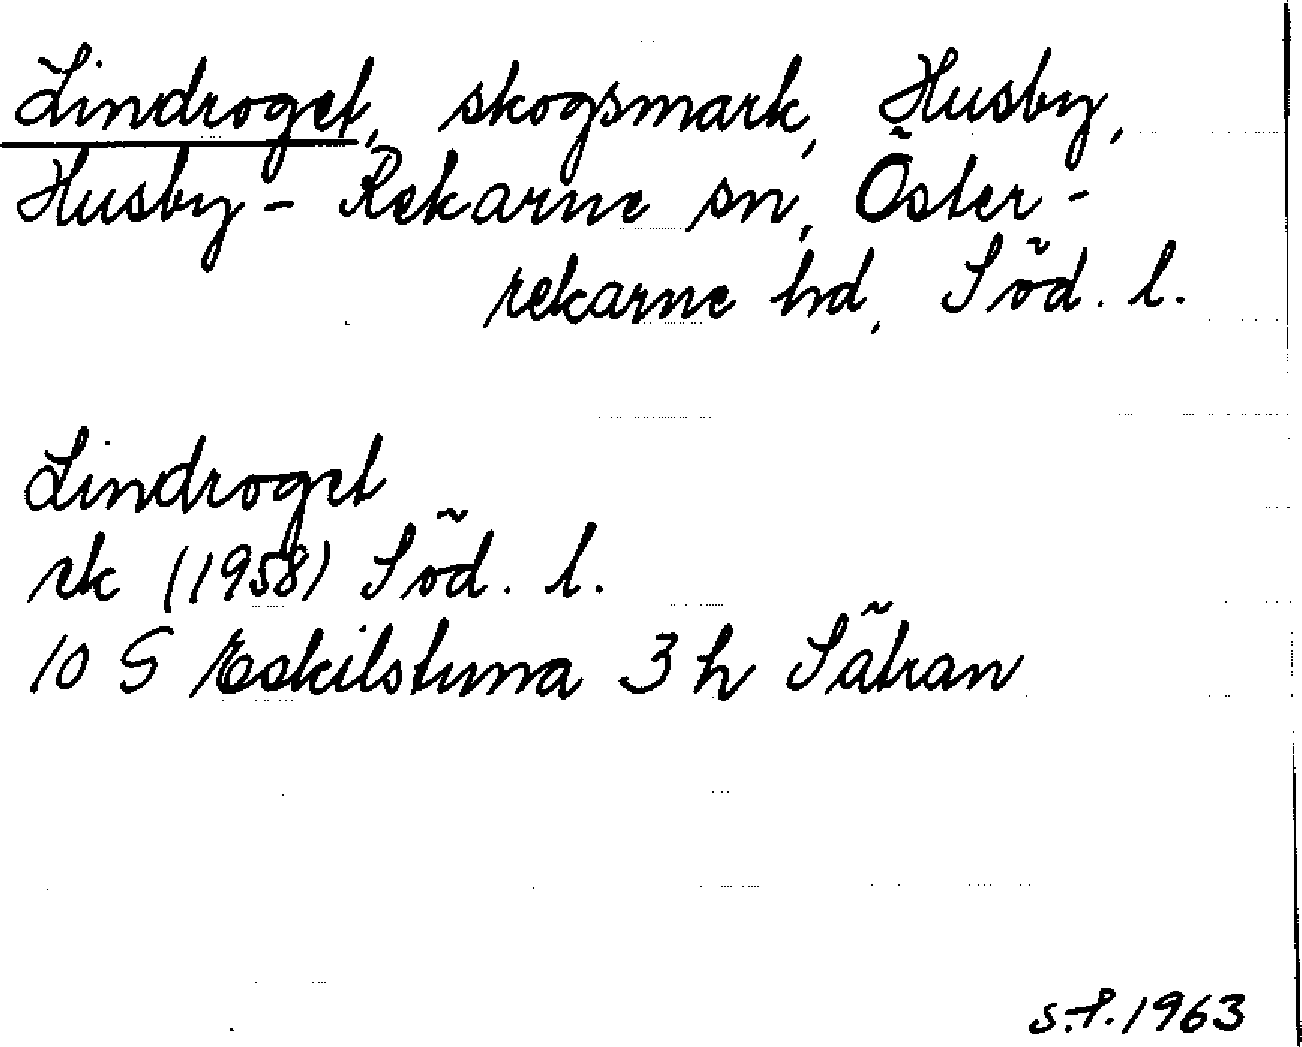 Lindroget, skogsmark, Husby,
Husby-Rekarne sn, Öster-
rekarne hd, Söd. l.
Lindroget
ek (1958) Söd. l.
10 G Eskilstuna 3 h Sätran
s.f. 1963